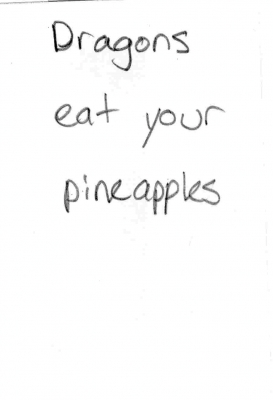 Dragons
eat your
pineapples